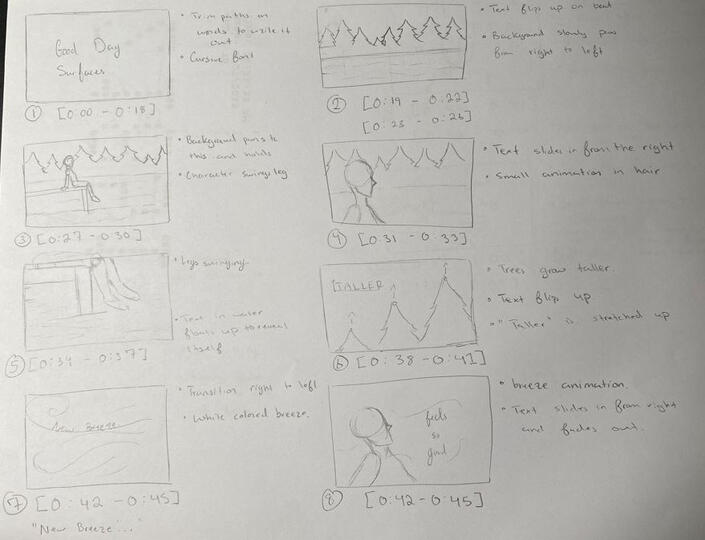 Good Day
Surfaces
• Trim paths on
words to write it
out
• Cursive font
① [0:00 - 0:18]
• Text flips up on beat
• Background slowly pans
from right to left
② [0:19 - 0:22]
[0:23 - 0:26]
• Background pans to
this and holds
• Character swings leg
③ [0:27 - 0:30]
• Text slides in from the right
• Small animation in hair
④ [0:31 - 0:33]
• Legs swinging
• Text in water
floats up to reveal
itself
⑤ [0:34 - 0:37]
TALLER
• Trees grow taller.
• Text flip up
• "Taller" is stretched up
⑥ [0:38 - 0:41]
New Breeze
• Transition right to left
• White colored breeze.
⑦ [0:42 - 0:45]
"New Breeze..."
feels
so
good
• breeze animation.
• Text slides in from right
and fades out.
⑧ [0:42 - 0:45]